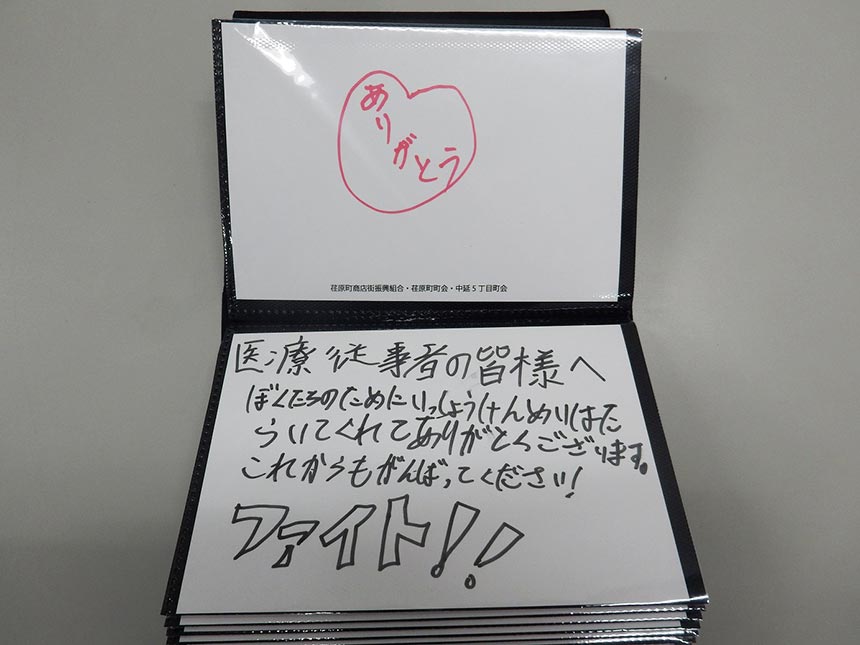 ありがとう
荏原町商店街振興組合・荏原町町会・中延5丁目町会
医療従事者の皆様へ
ぼくたちのためにいっしょうけんめいはた
らいてくれてありがとうございます。
これからもがんばってください!
ファイト!!